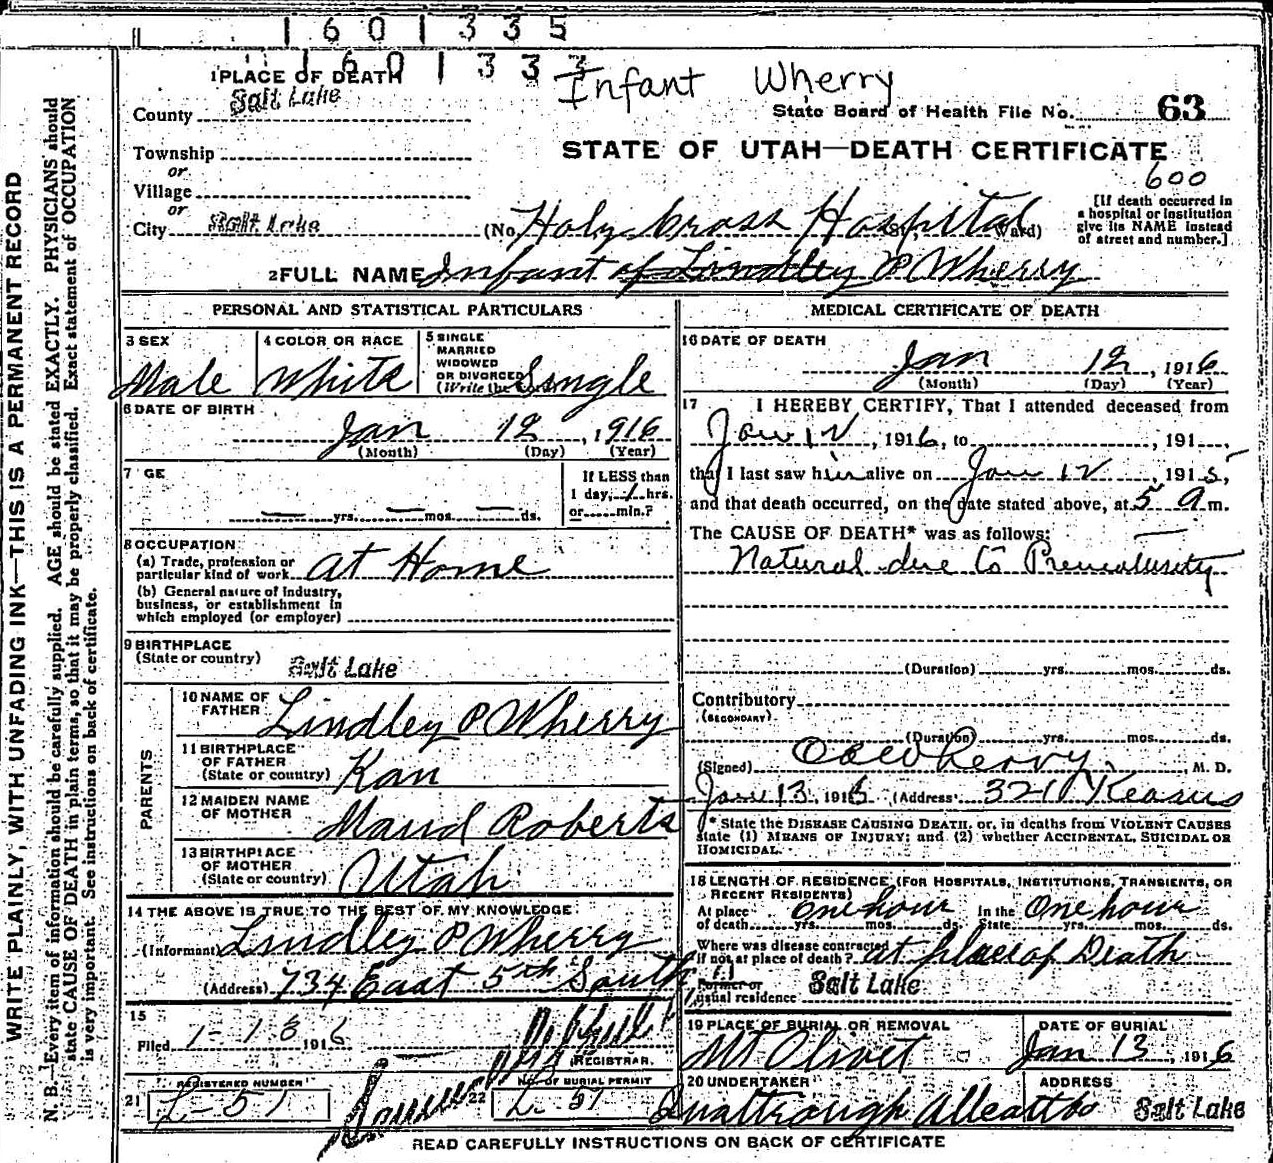 1601335
1601333
Infant Wherry
1 PLACE OF DEATH
County Salt Lake
State Board of Health File No. 63
Township
STATE OF UTAH—DEATH CERTIFICATE
or
600
Village
or
City Salt Lake
(No. Holy Cross Hospital St., Ward)
[If death occurred in
a hospital or institution
give its NAME instead
of street and number.]
2 FULL NAME Infant of Lindley P Wherry
PERSONAL AND STATISTICAL PARTICULARS
3 SEX
Male
4 COLOR OR RACE
White
5 SINGLE
MARRIED
WIDOWED
OR DIVORCED
(Write the Single
6 DATE OF BIRTH
Jan 12, 1916
(Month) (Day) (Year)
7 GE
— yrs. — mos. — ds.
If LESS than
1 day, 1 hrs.
or min.?
8 OCCUPATION
(a) Trade, profession or
particular kind of work at Home
(b) General nature of industry,
business, or establishment in
which employed (or employer)
9 BIRTHPLACE
(State or country) Salt Lake
PARENTS
10 NAME OF
FATHER Lindley P Wherry
11 BIRTHPLACE
OF FATHER
(State or country) Kan
12 MAIDEN NAME
OF MOTHER Maud Roberts
13 BIRTHPLACE
OF MOTHER
(State or country) Utah
14 THE ABOVE IS TRUE TO THE BEST OF MY KNOWLEDGE
(Informant) Lindley P Wherry
(Address) 734 East 5th South
15
Filed 1-13 1916
REGISTRAR.
REGISTERED NUMBER
21 L-51
NO. OF BURIAL PERMIT
22 L-51
MEDICAL CERTIFICATE OF DEATH
16 DATE OF DEATH
Jan 12, 1916
(Month) (Day) (Year)
17 I HEREBY CERTIFY, That I attended deceased from
Jan 12, 1916, to , 191 ,
that I last saw him alive on Jan 12, 1915,
and that death occurred, on the date stated above, at 5 a m.
The CAUSE OF DEATH* was as follows:
Natural due to Prematurity
(Duration) yrs. mos. ds.
Contributory
(SECONDARY)
(Duration) yrs. mos. ds.
(Signed) , M. D.
Jan 13, 1916 (Address) Kearns
* State the DISEASE CAUSING DEATH, or, in deaths from VIOLENT CAUSES
state (1) MEANS OF INJURY; and (2) whether ACCIDENTAL, SUICIDAL OR
HOMICIDAL.
18 LENGTH OF RESIDENCE (FOR HOSPITALS, INSTITUTIONS, TRANSIENTS, OR
RECENT RESIDENTS)
At place
of death one hour yrs. mos. ds. In the
State One hour yrs. mos. ds.
Where was disease contracted
if not at place of death? at place of Death
Former or
usual residence Salt Lake
19 PLACE OF BURIAL OR REMOVAL
Mt Olivet
DATE OF BURIAL
Jan 13, 1916
20 UNDERTAKER
ADDRESS
Salt Lake
READ CAREFULLY INSTRUCTIONS ON BACK OF CERTIFICATE
WRITE PLAINLY, WITH UNFADING INK—THIS IS A PERMANENT RECORD
N. B.—Every item of information should be carefully supplied. AGE should be stated EXACTLY. PHYSICIANS should
state CAUSE OF DEATH in plain terms, so that it may be properly classified. Exact statement of OCCUPATION
is very important. See instructions on back of certificate.